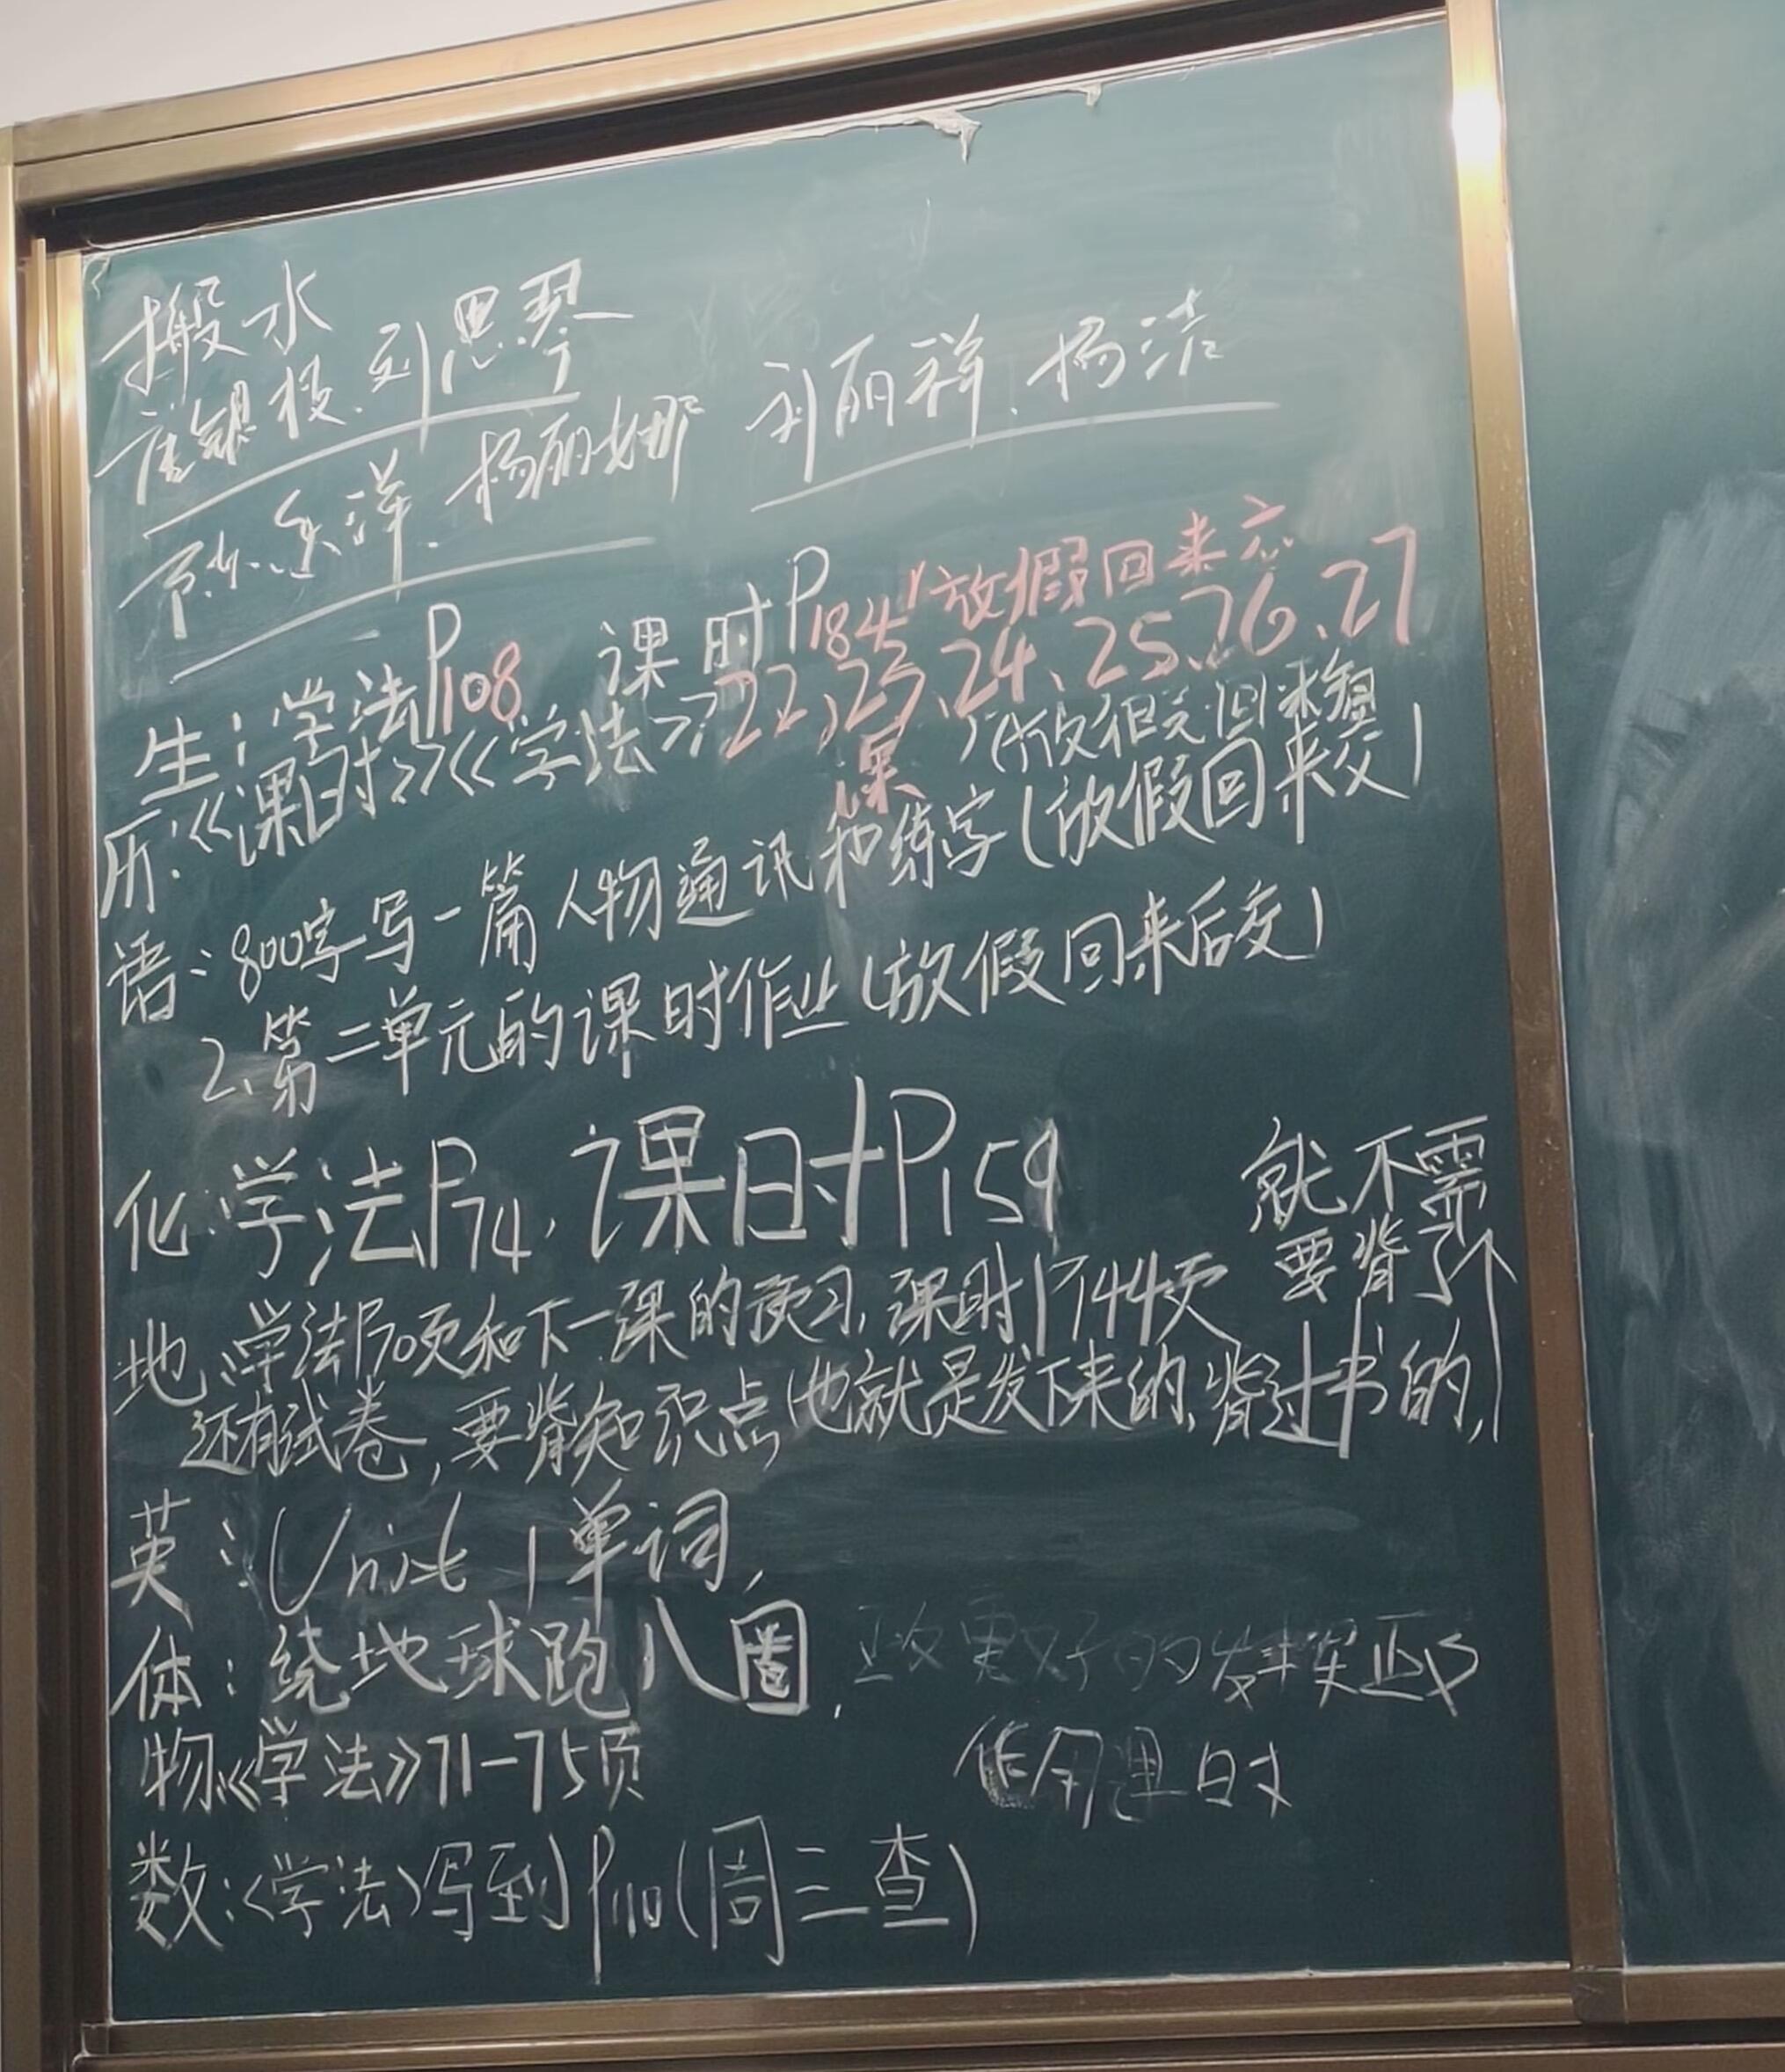 搬水
唐银极.刘思琴
杨丽娜 刘丽祥.杨洁
生:学法P108 课时P184 放假回来交
历:《课时》《学法》22,23、24、25、26、27课 (放假回来交)
语:800字写一篇人物通讯和练字(放假回来交)
2、第二单元的课时作业(放假回来后交)
化:学法P74,课时P159
地:学法P70页和下一课的预习,课时P144页
还有试卷,要背知识点(也就是发下来的,背过书的,就不需要背了)
英:Unit 1单词,
体:绕地球跑八圈,
更好的发挥
物:《学法》71-75页
数:<学法>写到P110(周三查)